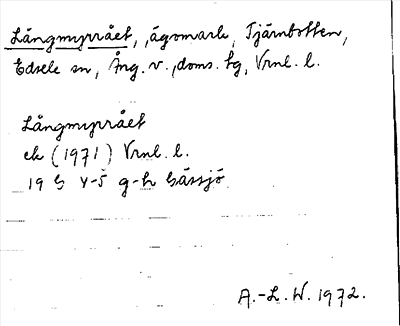 Långmyrrået, ägomark, Tjärnbotten,
Edsele sn, Ång. v., doms. tg, Vrnl. l.
Långmyrrået
ek (1971) Vrnl. l.
19 G 4-5 g-h Gåssjö
A.-L. W. 1972.